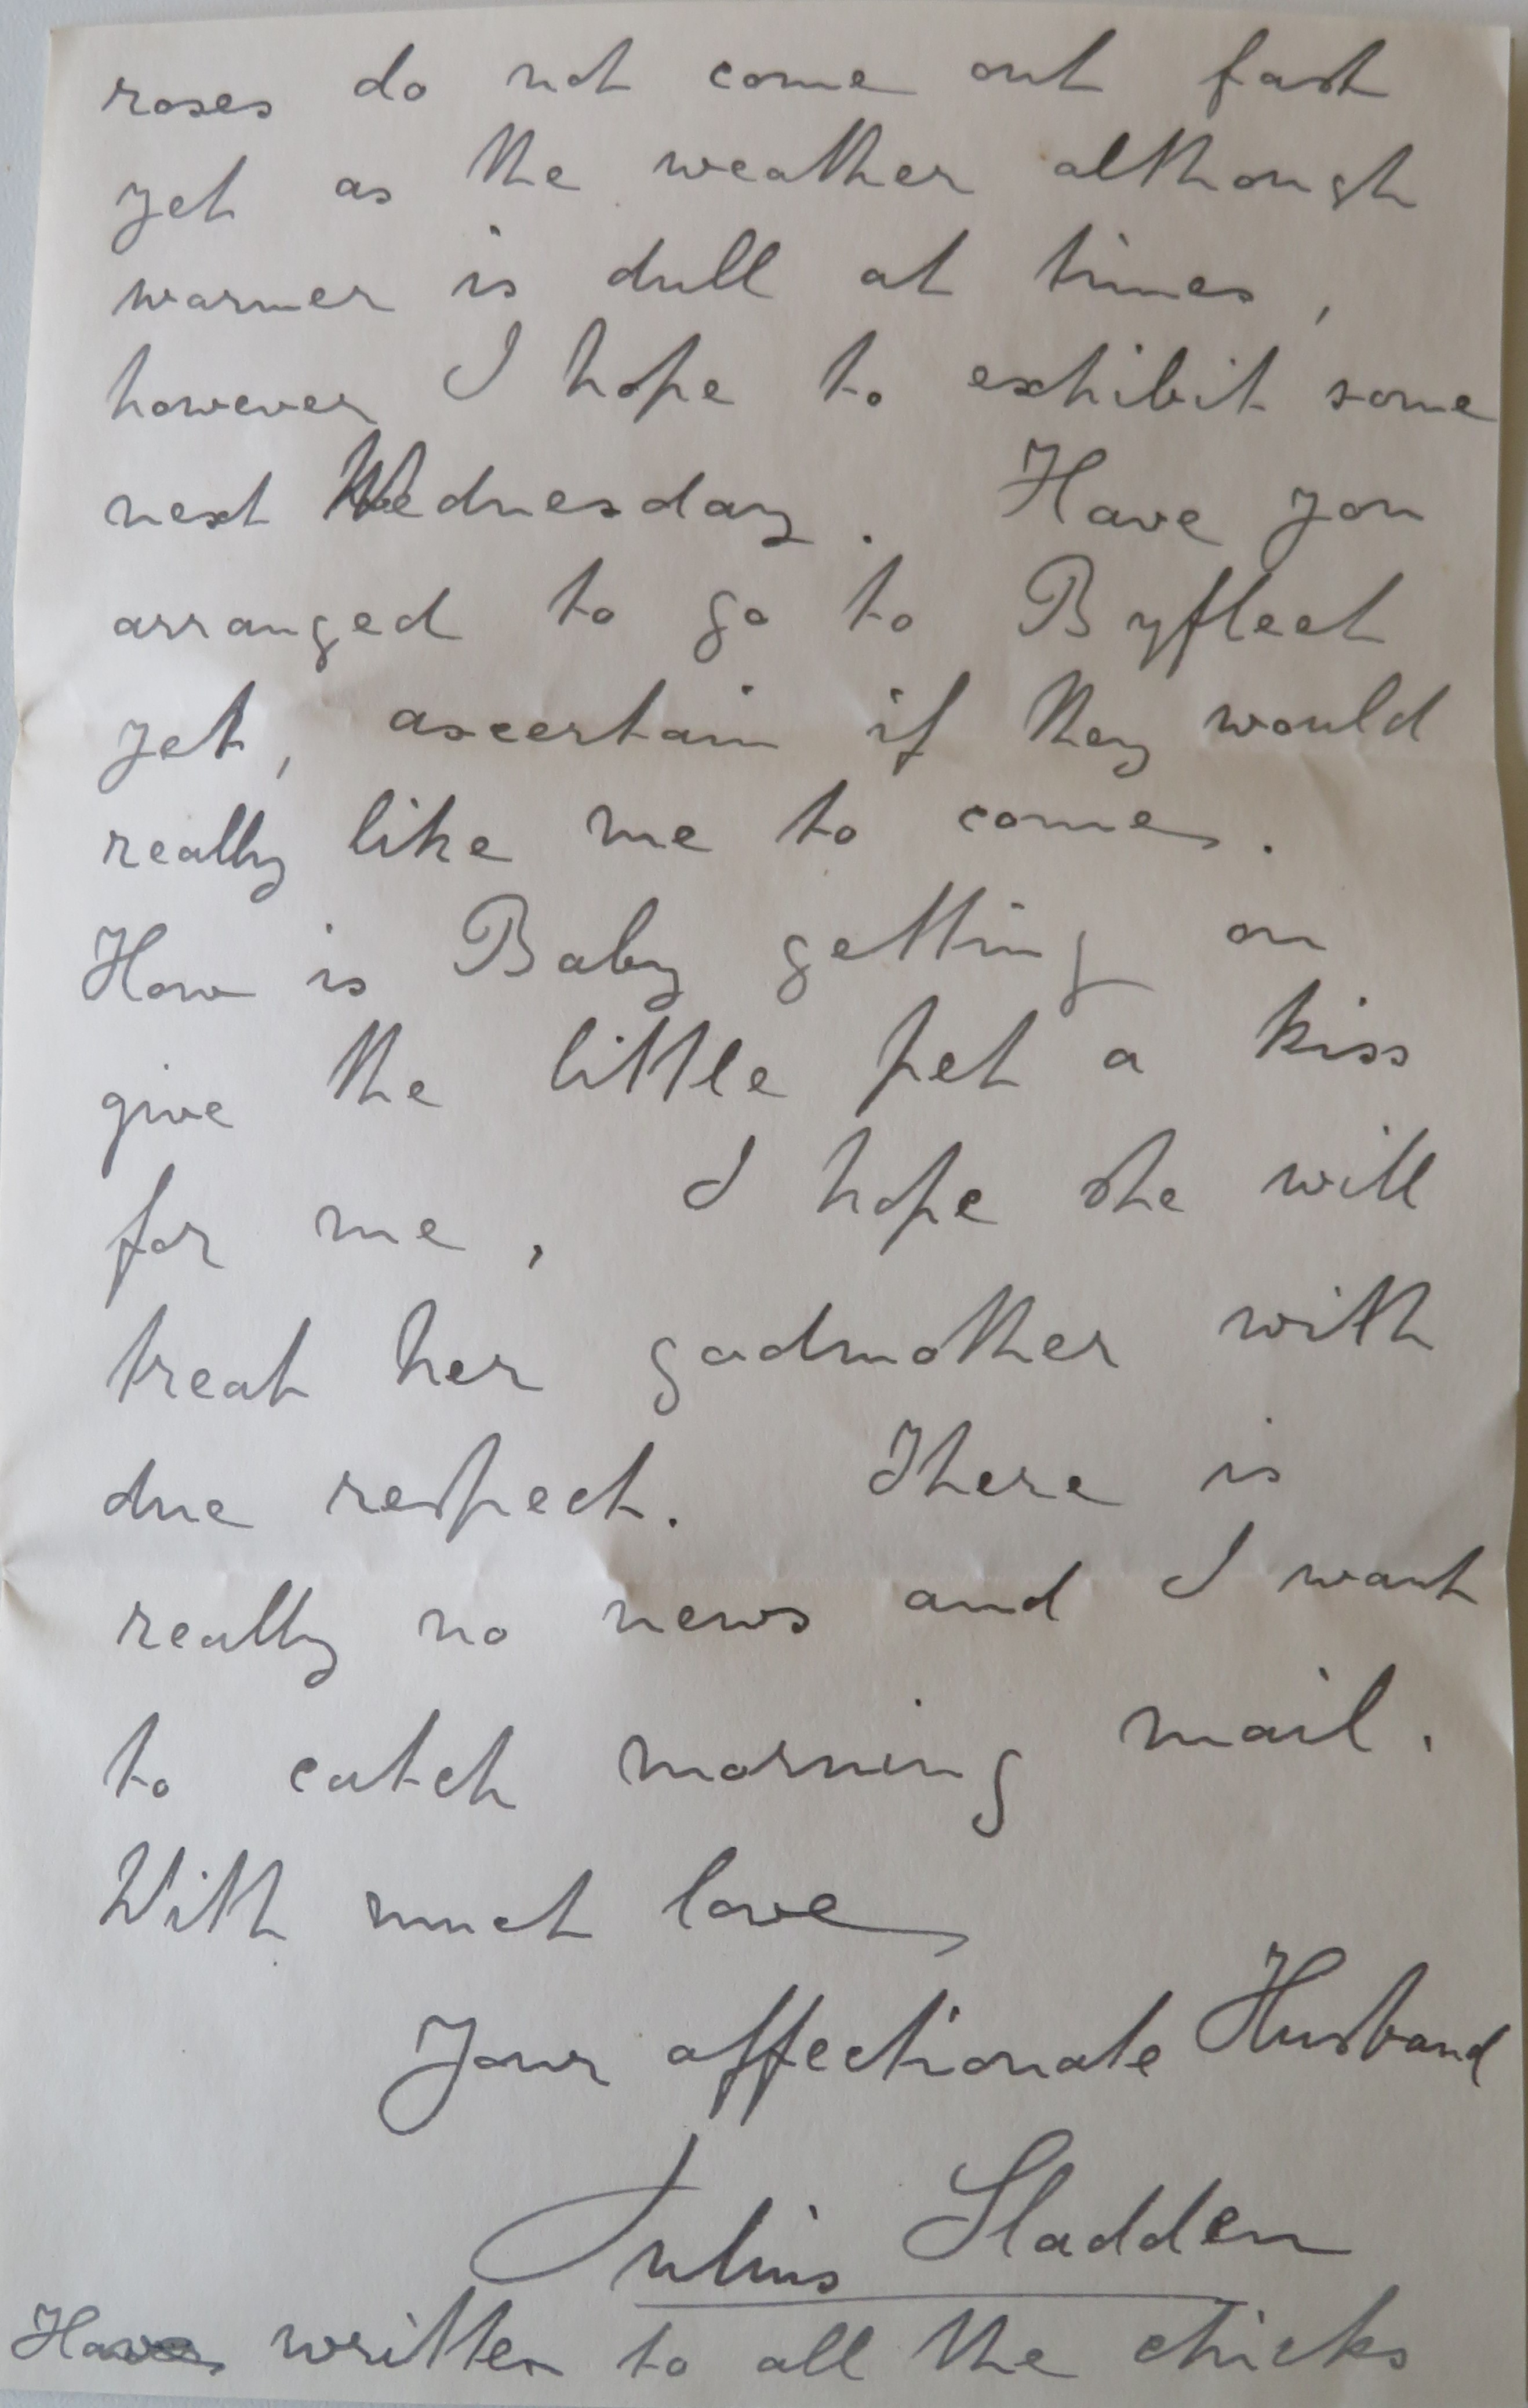 roses do not come out fast
yet as the weather although
warmer is dull at times,
however I hope to exhibit some
next Wednesday. Have you
arranged to go to Byfleet
yet, ascertain if they would
really like me to come.
How is Baby getting on
give the little pet a kiss
for me, I hope she will
treat her godmother with
due respect. There is
really no news and I want
to catch morning mail.
With much love
Your affectionate Husband
Julius Sladden
Have written to all the chicks